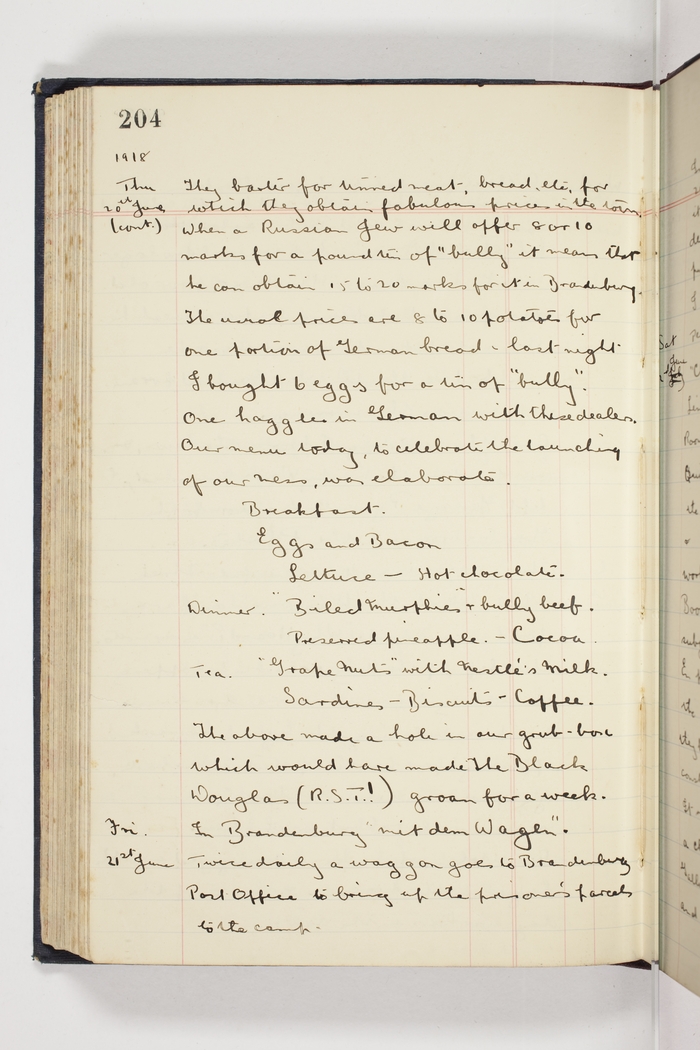 204
1918
Thu
20th June
(cont.)
They barter for tinned meat, bread, etc, for
which they obtain fabulous prices in the town.
When a Russian Jew will offer 8 or 10
marks for a pound tin of "bully" it means that
he can obtain 15 to 20 marks for it in Brandenburg.
The usual prices are 8 to 10 potatoes for
one portion of German bread - last night
I bought 6 eggs for a tin of "bully".
One haggles in German with these dealers.
Our menu today, to celebrate the launching
of our mess, was elaborate.
Breakfast.
Eggs and Bacon
Lettuce - Hot chocolate.
Dinner. "Biled Murphies" + bully beef.
Preserved pineapple. - Cocoa.
Tea. "Grape Nuts" with Nestlé's Milk.
Sardines - Biscuits - Coffee.
The above made a hole in our grub-box
which would have made the Black
Douglas (R.S.T.!) groan for a week.
Fri.
21st June
In Brandenburg "mit dem Wagen".
Twice daily a waggon goes to Brandenburg
Post Office to bring up the prisoner's parcels
to the camp.
Sat